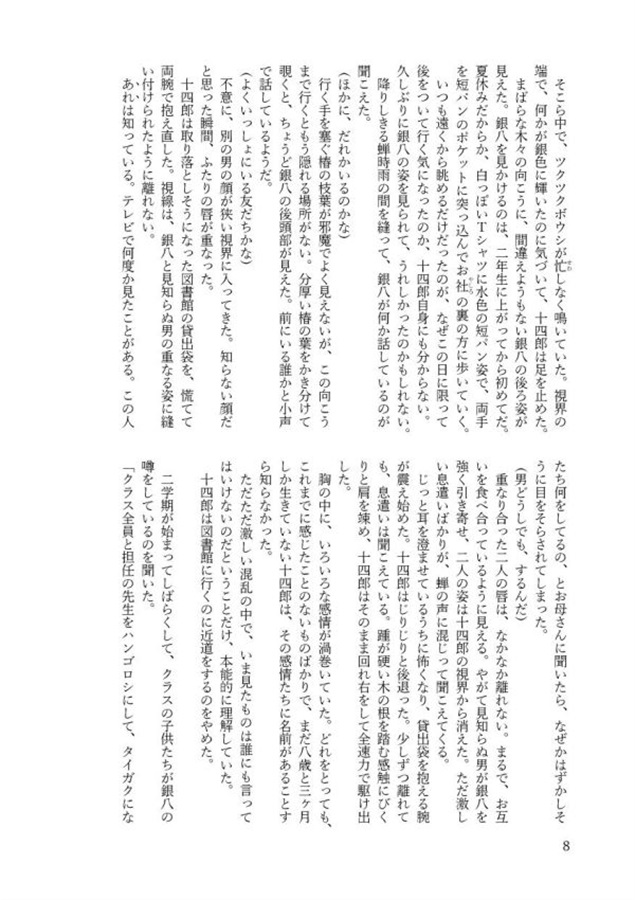 そこら中で、ツクツクボウシが忙しなく鳴いていた。視界の
端で、何かが銀色に輝いたのに気づいて、十四郎は足を止めた。
まばらな木々の向こうに、間違えようもない銀八の後ろ姿が
見えた。銀八を見かけるのは、二年生に上がってから初めてだ。
夏休みだからか、白っぽいTシャツに水色の短パン姿で、両手
を短パンのポケットに突っ込んでお社の裏の方に歩いていく。
いつも遠くから眺めるだけだったのが、なぜこの日に限って
後をついて行く気になったのか、十四郎自身にも分からない。
久しぶりに銀八の姿を見られて、うれしかったのかもしれない。
降りしきる蝉時雨の間を縫って、銀八が何か話しているのが
聞こえた。
(ほかに、だれかいるのかな)
行く手を塞ぐ椿の枝葉が邪魔でよく見えないが、この向こう
まで行くともう隠れる場所がない。分厚い椿の葉をかき分けて
覗くと、ちょうど銀八の後頭部が見えた。前にいる誰かと小声
で話しているようだ。
(よくいっしょにいる友だちかな)
不意に、別の男の顔が狭い視界に入ってきた。知らない顔だ
と思った瞬間、ふたりの唇が重なった。
十四郎は取り落としそうになった図書館の貸出袋を、慌てて
両腕で抱え直した。視線は、銀八と見知らぬ男の重なる姿に縫
い付けられたように離れない。
あれは知っている。テレビで何度か見たことがある。この人
たち何をしてるの、とお母さんに聞いたら、なぜかはずかしそ
うに目をそらされてしまった。
(男どうしでも、するんだ)
重なり合った二人の唇は、なかなか離れない。まるで、お互
いを食べ合っているように見える。やがて見知らぬ男が銀八を
強く引き寄せ、二人の姿は十四郎の視界から消えた。ただ激し
い息遣いばかりが、蝉の声に混じって聞こえてくる。
じっと耳を澄ませているうちに怖くなり、貸出袋を抱える腕
が震え始めた。十四郎はじりじりと後退った。少しずつ離れて
も、息遣いは聞こえている。踵が硬い木の根を踏む感触にびく
りと肩を竦め、十四郎はそのまま回れ右をして全速力で駆け出
した。
胸の中に、いろいろな感情が渦巻いていた。どれをとっても、
これまでに感じたことのないものばかりで、まだ八歳と三ヶ月
しか生きていない十四郎は、その感情たちに名前があることす
ら知らなかった。
ただただ激しい混乱の中で、いま見たものは誰にも言って
はいけないのだということだけ、本能的に理解していた。
十四郎は図書館に行くのに近道をするのをやめた。
二学期が始まってしばらくして、クラスの子供たちが銀八の
噂をしているのを聞いた。
「クラス全員と担任の先生をハンゴロシにして、タイガクにな
8